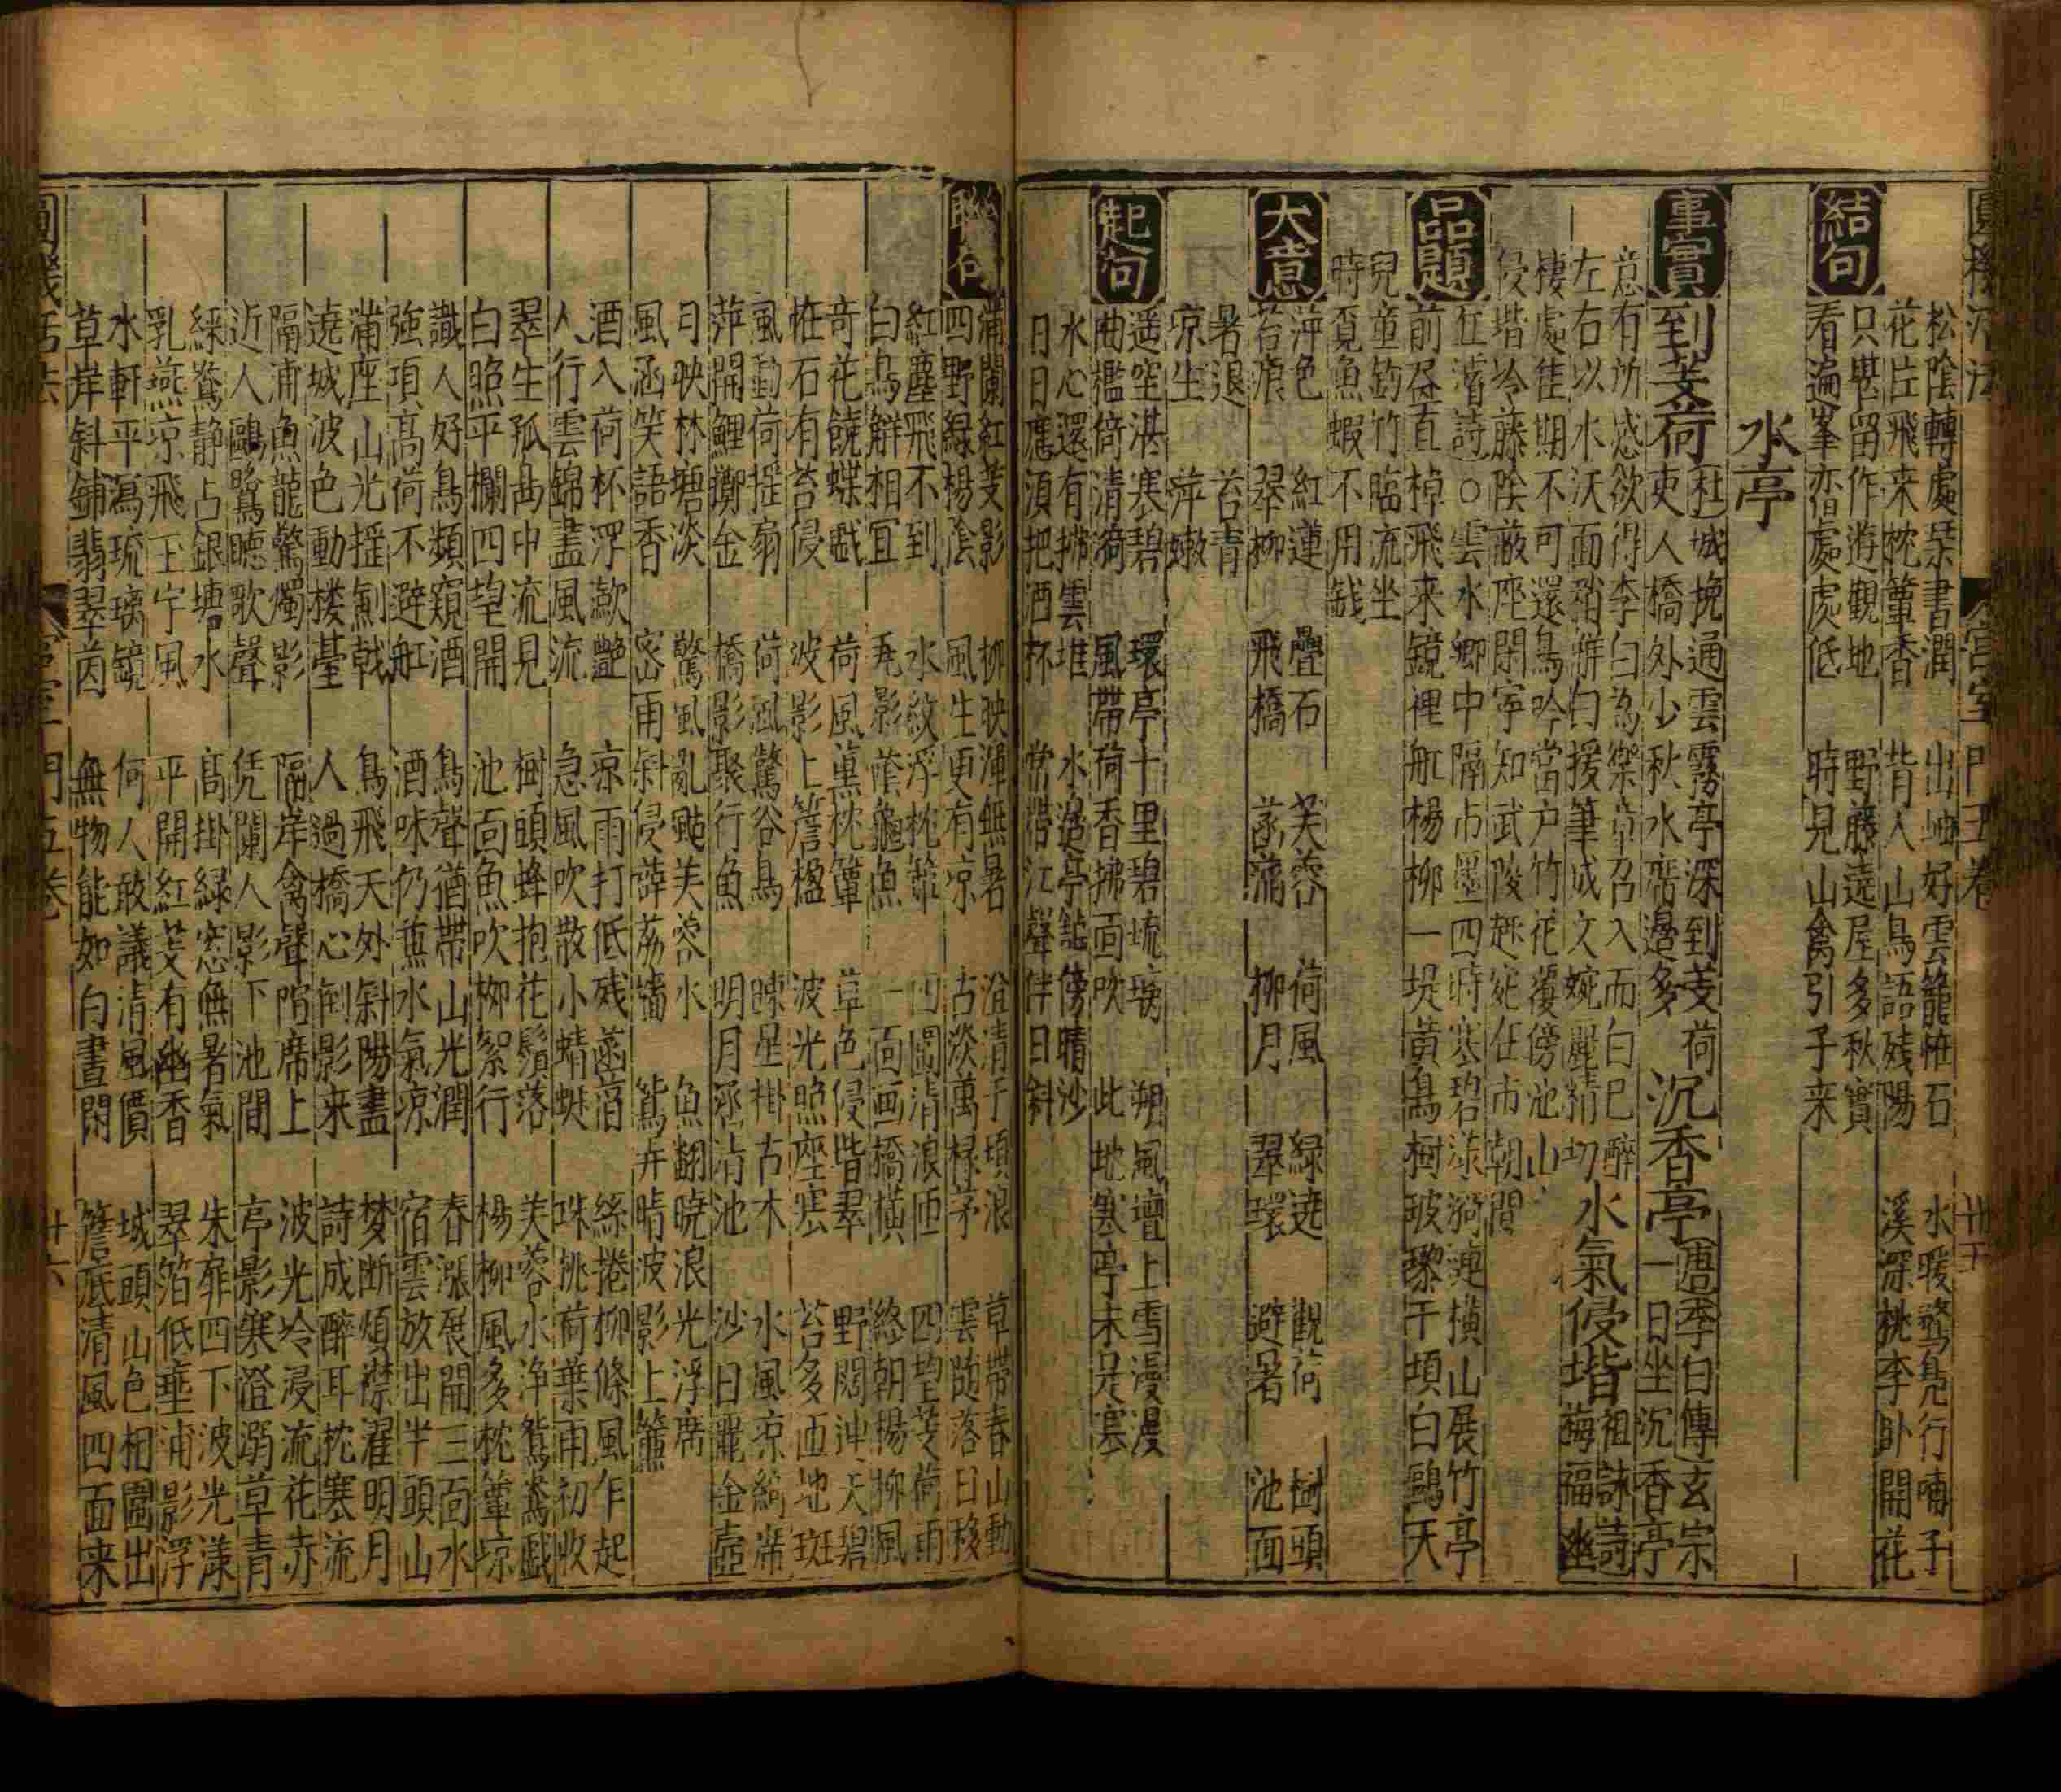 松陰轉處琹書潤 出岫好雲籠恠石 水暖鵞鳬行哺子
花片飛来枕簟香 背人山鳥語殘陽 溪深桃李卧開花
結句
只堪留作遊觀地 野藤遶屋多秋實
看遍峯巒處處低 時見山禽引子来
水亭
事實
到芰荷 杜城挽通雲霧亭深到芰荷
吏人橋外少秋水席邊多
沉香亭 唐李白傳玄宗一日坐沉香亭
意有所感欲得李白為樂章召入而白已醉
左右以水沃面稍觧白援筆成文婉麗精切
水氣侵堦 祖詠詩梅福幽
棲處佳期不可還鳥吟當户竹花覆傍池山
侵堦冷藤陰蔽座閑寧知武陵趣宛在市朝間
品題
丘濬詩○雲水鄉中隔市墨四時寒碧漾漪漣横山展竹亭
前昼直棹飛来鏡裡舡楊柳一堤黃鳥樹玻瓈千項白鷗天
兒童釣竹臨流坐
時覓魚蝦不用錢
大意
萍色 紅蓮 疊石 芙蓉 荷風 緑遶 觀荷 樹頭
苔痕 翠柳 飛橋 菡蒲 柳月 翠環 避暑 池面
暑退 苔青
凉生 萍嫩
起句
遥空湛寒碧 環亭十里碧琉璃 朔風壇上雪漫漫
曲檻倚清漪 風帶荷香拂面吹 此地寒亭未是寒
水心還有拂雲堆 水邊亭舘傍晴沙
日日應須把酒杯 常帶江聲伴日斜
聯句
蒲闌紅芰影 柳映渾無暑 澄清千頃浪 草帶春山動
四野緑楊陰 風生更有凉 古淡萬椽茅 雲随落日移
紅塵飛不到 水紋浮枕簟 四圍清浪匝 四望芰荷雨
白鳥觧相宜 亮影蔭龜魚 一面画橋横 終朝楊柳風
奇花饒蝶戲 荷風薰枕簟 草色侵堦翠 野闊連天碧
恠石有苔侵 波影上簷楹 波光照座寒 苔多匝地斑
風動荷揺扇 荷風驚谷鳥 踈星掛古木 水風凉綺席
萍開鯉擲金 橋影聚行魚 明月烝沾池 沙日麗金壺
月映林塘淡 驚風亂颭芙蓉水 魚翻曉浪光浮席
風涵笑語香 宻雨斜侵薜荔墻 鴛弄晴波影上簾
酒入荷杯浮歠艷 凉雨打低殘菡萏 絲捲柳條風乍起
人行雲錦盡風流 急風吹散小蜻蜓 珠挑荷葉雨初收
翠生孤㠀中流見 樹頭蜂抱花鬚落 芙蓉水净鴛鴦戲
白照平欄四望開 池面魚吹柳絮行 楊柳風多枕簟凉
識人好鳥頻窺酒 鳥聲猶帶山光潤 春漲展開三面水
強項高荷不避舡 酒味仍兼水氣凉 宿雲放出半頭山
蒲座山光揺劍戟 鳥飛天外斜陽盡 梦断煩襟濯明月
遶城波色動楼臺 人過橋心倒影来 詩成醉耳枕寒流
隔浦魚龍驚燭影 隔岸禽聲陪席上 波光冷浸流花赤
近人鷗鷺聴歌聲 凭闌人影下池間 亭影寒澄溺草青
綵鴛静占銀塘水 高掛緑窓無暑氣 朱扉四下波光漾
乳燕凉飛玉宇風 平開紅芰有幽香 翠箔低垂浦影浮
水軒平瀉琉璃鏡 何人敢議清風價 城頭山色相圍出
草岸斜鋪翡翠茵 無物能如白晝閑 簷底清風四面来